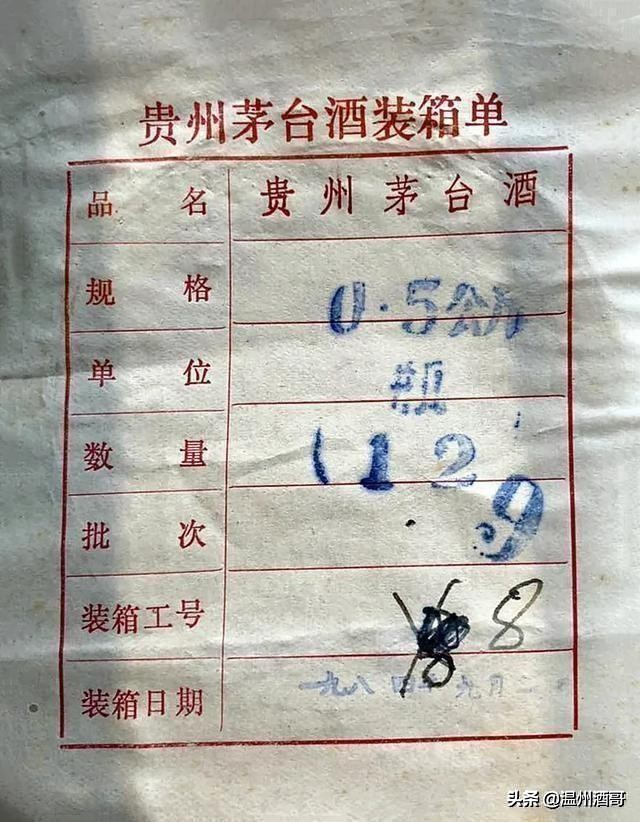 贵州茅台酒装箱单
品名 贵州茅台酒
规格 0.5公斤
单位 瓶
数量 (12
批次 9
装箱工号 8
装箱日期 一九八四年九月二
头条 @温州酒哥